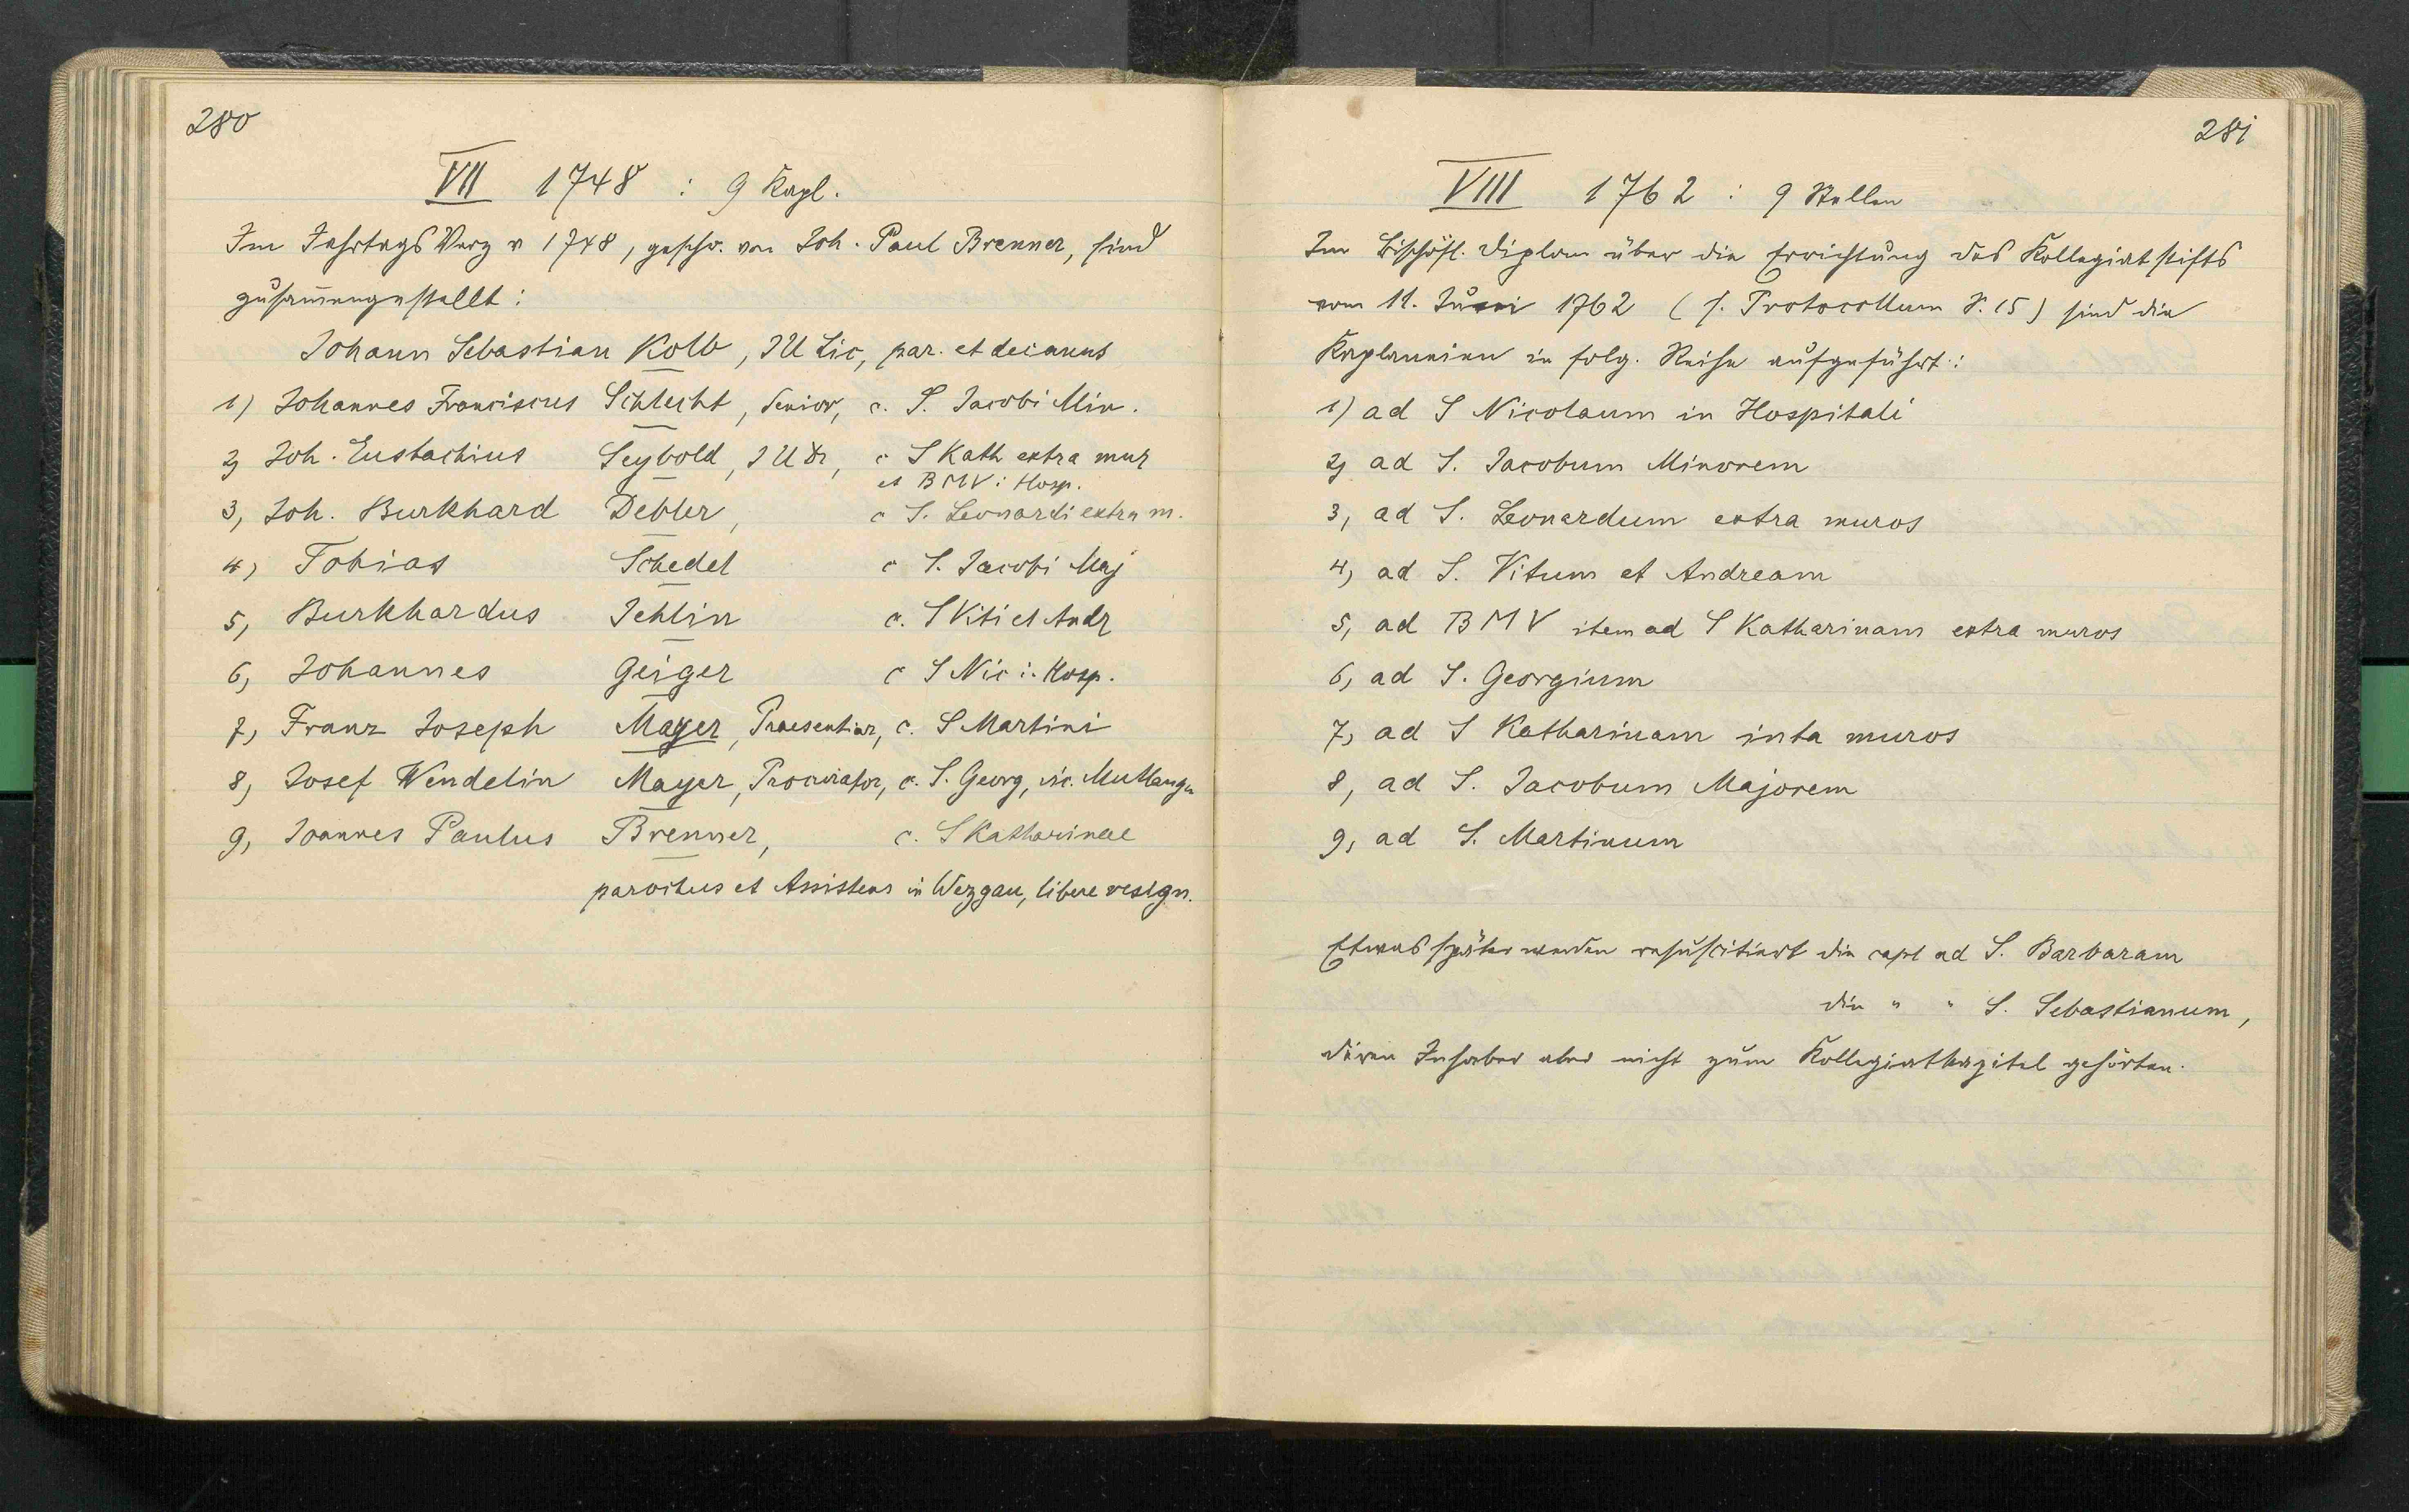 280
VII 1748 : 9 Kapl.
Im Jahrtags Verz v 1748, geschr. von Joh. Paul Brenner, sind
zusam̅engestellt:
Johann Sebastian Kolb, JU Lic, par. et decanus
1) Johannes Franciscus Schlecht, Senior, c. S. Jacobi Min.
2) Joh. Eustachius Seybold, JUDr, c S Kath extra mur
et BMV i Hosp.
3, Joh. Burkhard Debler, c S. Leonardi extra m.
4) Tobias Schedel c S. Jacobi Maj
5, Burkhardus Jehlin c. S Viti et Andr
6, Johannes Geiger c S Nic i. Hosp.
7, Franz Joseph Mayer, Praesentiar, c. S Martini
8, Josef Wendelin Mayer, Procurator, c. S. Georg, vic. Mutlangen
9, Joannes Paulus Brenner, c. S Katharinae
parochus et Assistens in Wezgau, libere resign.
281
VIII 1762 : 9 Stellen
Im Bischöfl. Diplom über die Errichtung des Kollegiatstifts
vom 11. Juni 1762 (s. Protocollum S. 15) sind die
Kaplaneien in folg. Reihe aufgeführt:
1) ad S Nicolaum in Hospitali
2) ad S. Jacobum Minorem
3, ad S. Leonardum extra muros
4) ad S. Vitum et Andream
5, ad BMV item ad S Katharinam extra muros
6, ad S. Georgium
7, ad S Katharinam inta muros
8, ad S. Jacobum Majorem
9, ad S. Martinum
Etwas später werden resuscitiert die capl ad S. Barbaram
die " " S. Sebastianum,
deren Inhaber aber nicht zum Kollegiatkapitel gehörten.